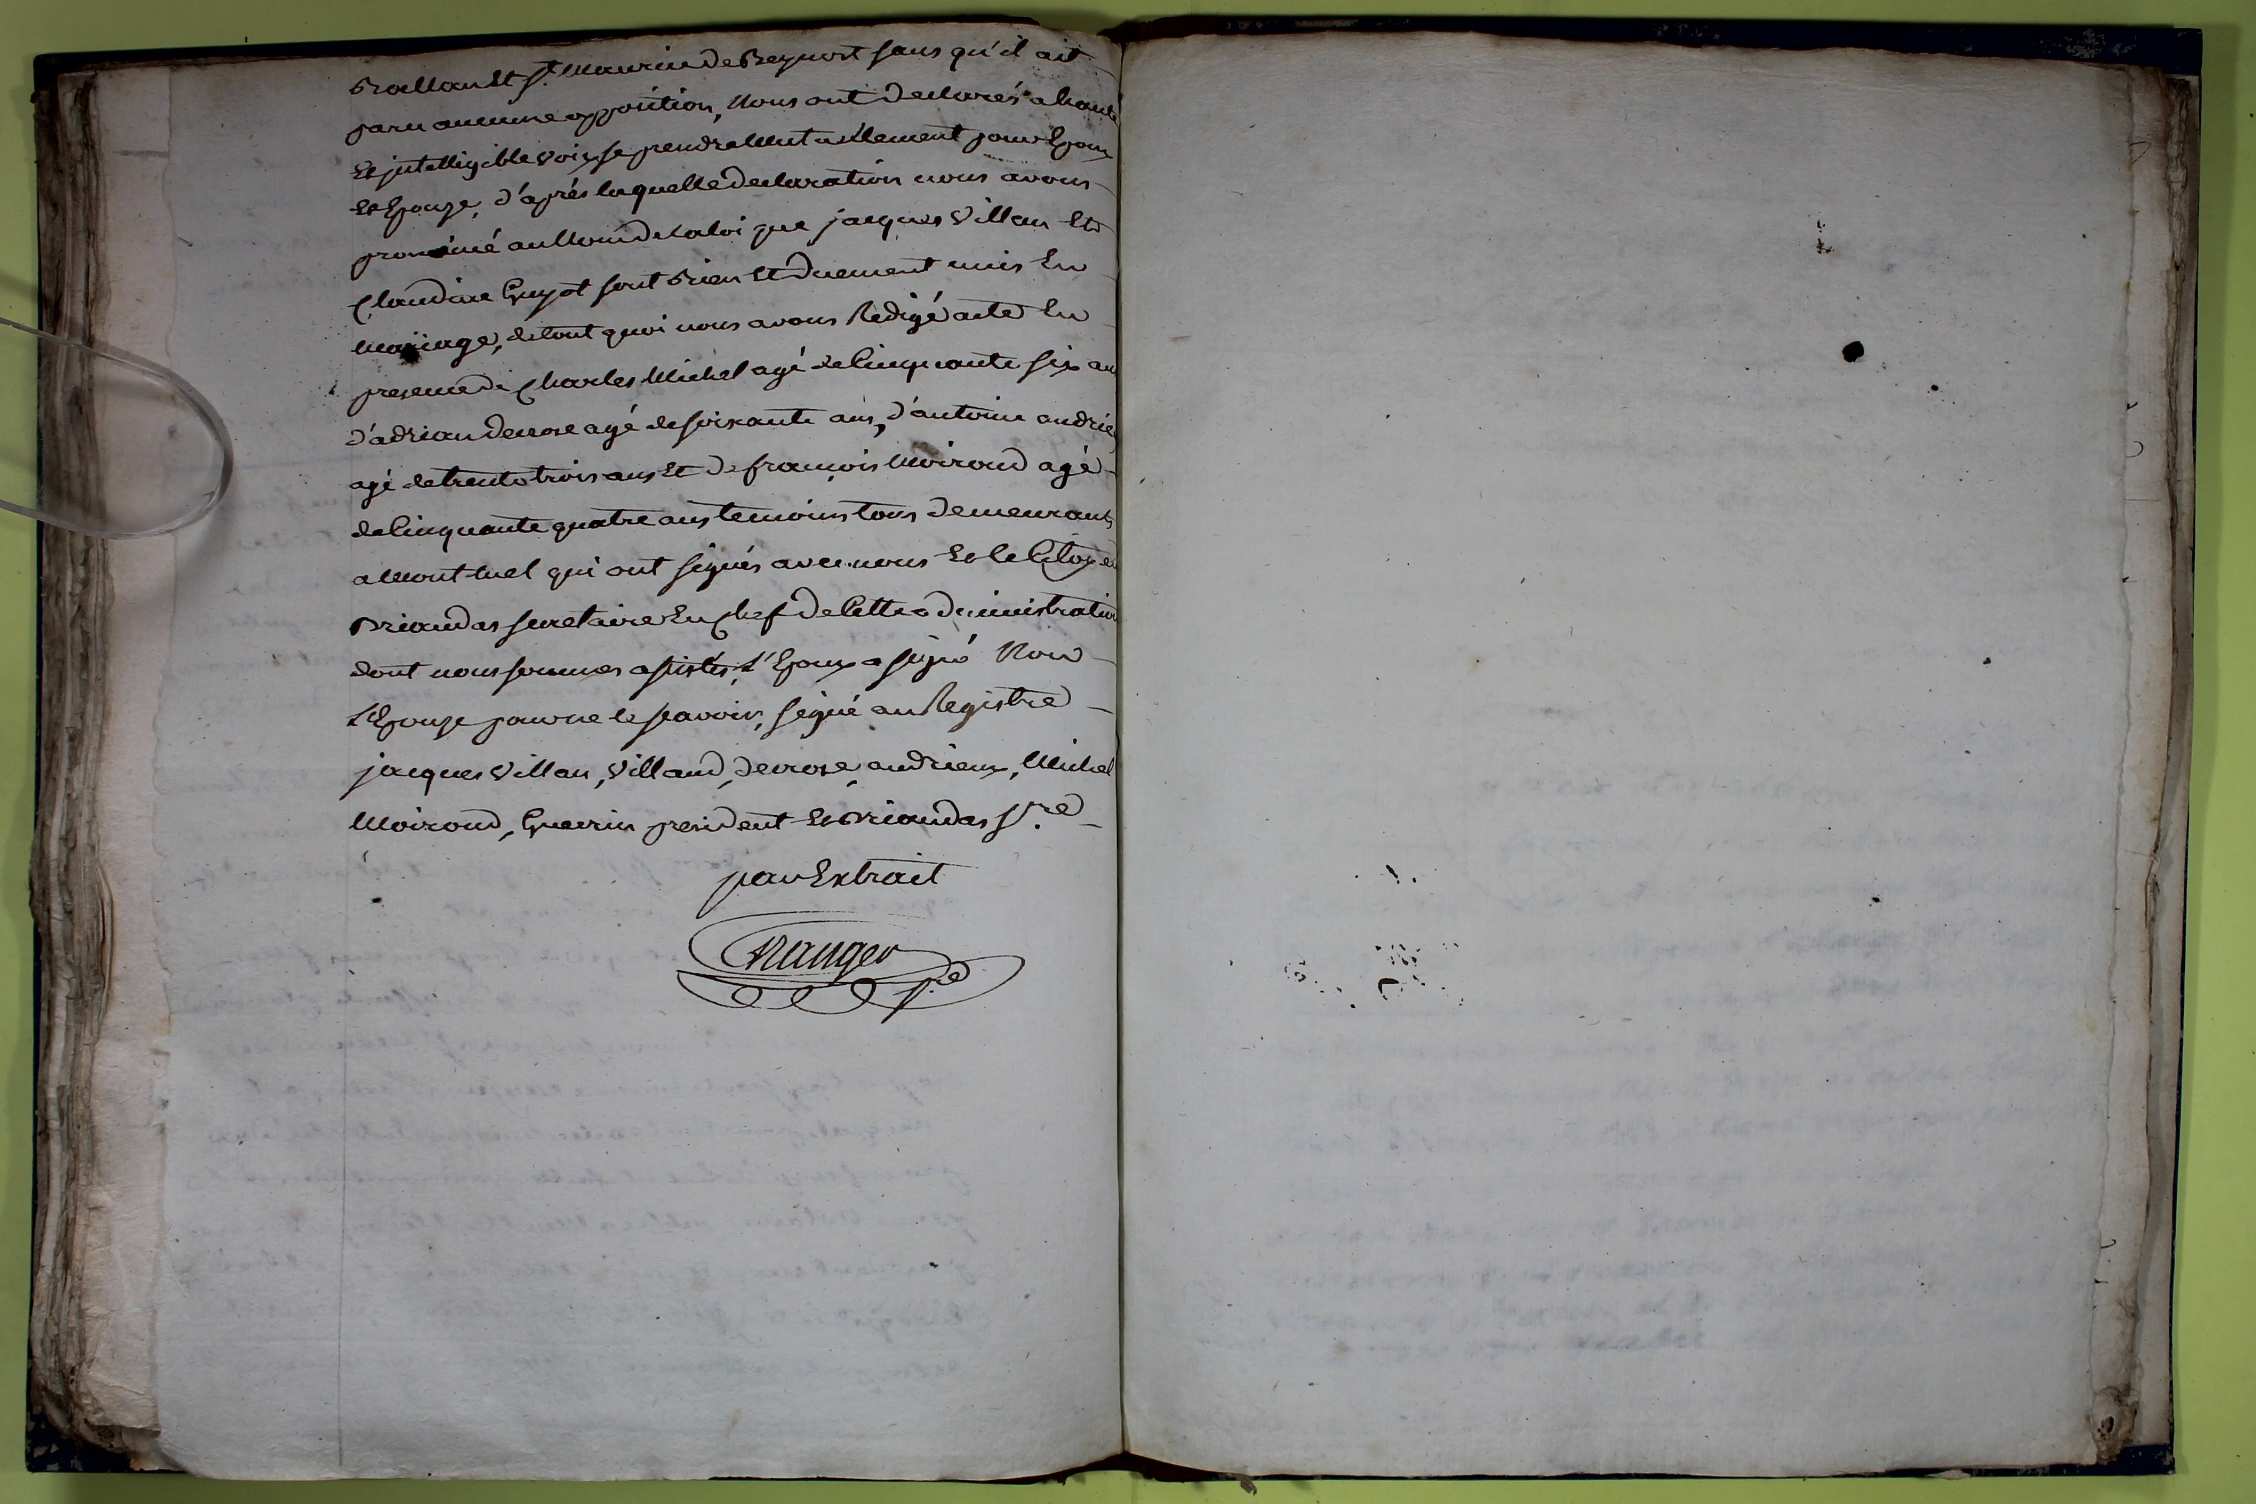 Brallan Et St. Maurice de Beynost sans qu'il ait
paru aucune opposition, Nous ont declarés a haute
Et intelligible voix se prendre Mutuellement pour Epoux
Et Epouse, d'après laquelle declaration nous avons
prononcé au Nom de la loi que jacques Villan Et
Claudine Guyot sont Bien Et Duement unis En
mariage, de tout quoi nous avons Redigé acte En
presence de Charles Michel agé de Cinquante six ans
d'adrian Devose agé de soixante ans, d'antoine andrieu
agé de trente trois ans Et de françois Moiroud agé
de Cinquante quatre ans temoins tous Demeurants
a Montluel qui ont signés avec nous Et le Citoyen
Briandas secretaire En Chef de Cette administration
dont nous sommes assistés, L'Epoux a signé Non
L'Epouse pour ne le scavoir, signé au Registre
jacques Villan, Villand, Devose, andrieux, Michel
Moiroud, Guerrin president Et Briandas sre
par Extrait
Nanger